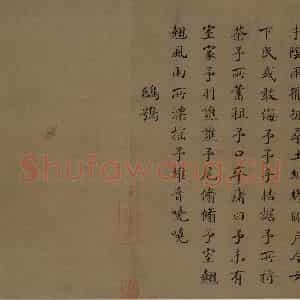 陰雨徹彼桑土綢繆牖戶今女
下民或敢侮予予手拮据予所捋
荼予所蓄租予口卒瘏曰予未有
室家予羽譙譙予尾翛翛予室翹
翹風雨所漂搖予維音嘵嘵
鴟鴞
Shufawang.cn